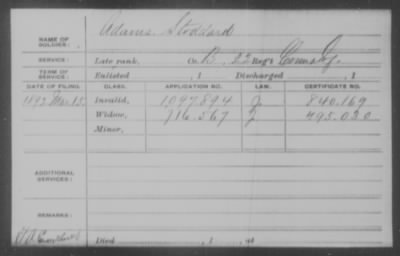 NAME OF SOLDIER: Adams, Stoddard
SERVICE: Late rank, Co. B, 22 Reg't Conn. Inf.
TERM OF SERVICE: Enlisted , 1 Discharged , 1
DATE OF FILING. CLASS. APPLICATION NO. LAW. CERTIFICATE NO.
1892 Mar. 15 Invalid, 1097.894 J 840.169
Widow, 716.567 J 495.030
Minor,
ADDITIONAL SERVICES:
REMARKS:
Died , 1 , at